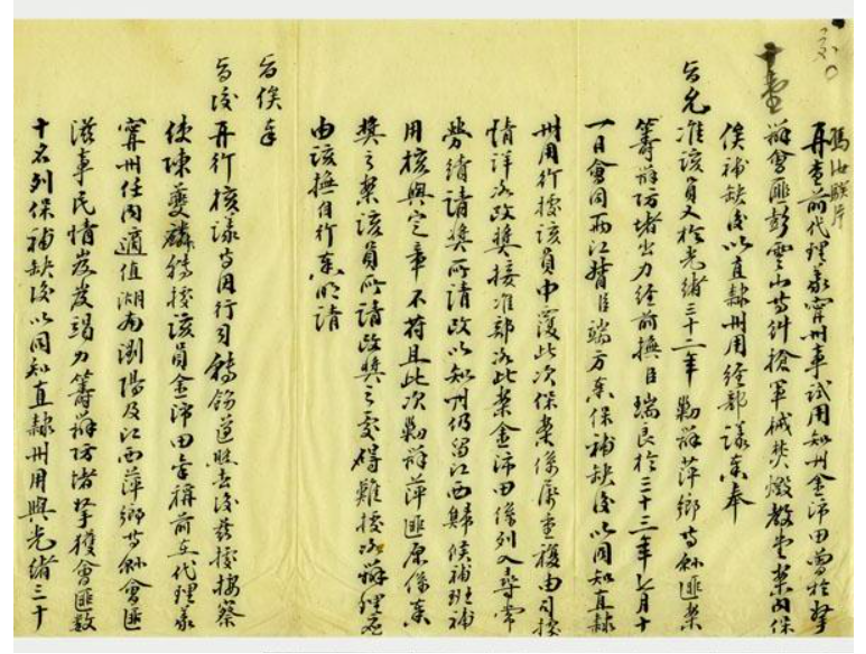 馮汝騤片
再查前代理義寧州事試用知州金沛田曾於拏
辦會匪彭雲山等糾搶軍械焚燬教堂案內保
俟補缺後以直隸州用經部議奏奉
旨允准該員又於光緒三十二年勦辦萍鄉等縣匪案
籌辦防堵出力經前撫臣瑞良於三十三年七月十
一日會同兩江督臣端方奏保補缺後以同知直隸
州用行據該員申覆此次保案係屬重複由司按
情詳咨改獎接准部咨此案金沛田係列入尋常
勞績請獎所請改以知州仍留江西歸候補班補
用核與定章不符且此次勦辦萍匪原係奏
獎之案該員所請改獎之處礙難據咨辦理應
由該撫自行奏明請
旨俟奉
旨後再行核議等因行司飭遵照去後茲據按察
使陳夔麟轉據該員金沛田稟稱前在代理義
寧州任內適值湖南瀏陽及江西萍鄉等縣會匪
滋事民情岌岌竭力籌辦防堵拏獲會匪數
十名列保補缺後以同知直隸州用與光緒三十